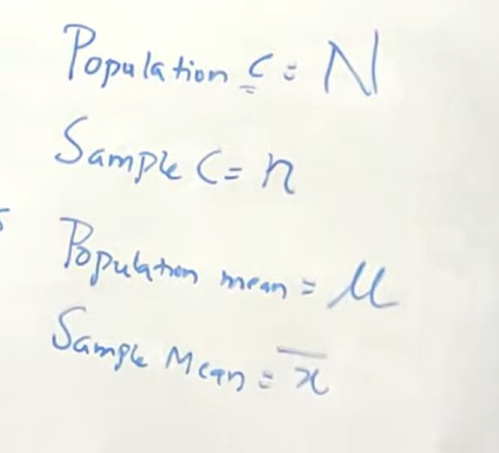 Population c = N
Sample C = n
Population mean = μ
Sample Mean = x̄